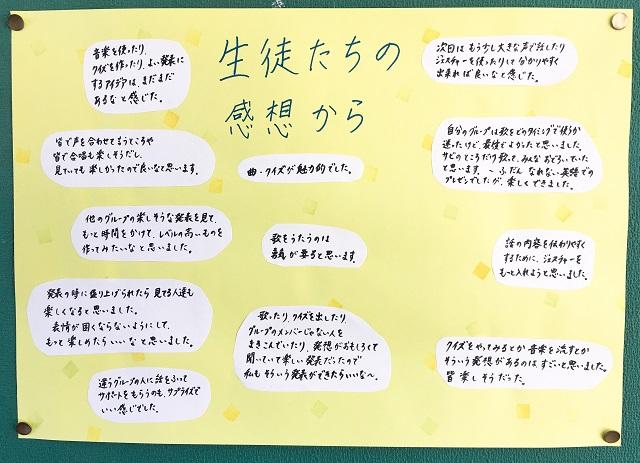 生徒たちの
感想から
音楽を使ったり、
クイズを作ったり、よい発表に
するアイデアは、まだまだ
あるなと感じた。
次回は もう少し大きな声で話したり
ジェスチャーを使ったりして分かりやすく
出来れば良いなと感じた。
皆で声を合わせて言うところや
皆で合唱も楽しそうだし、
見ていても楽しかったので良いなと思います。
曲・クイズが魅力的でした。
自分のグループは歌をどのタイミングで使うか
迷ったけど、最後でよかったと思いました。
サビのところだけ歌って、みんなおどろいていた
と思います。〜ふだん なれない英語での
プレゼンでしたが、楽しくできました。
他のグループの楽しそうな発表を見て、
もっと時間をかけて、レベルの高いものを
作ってみたいなと思いました。
歌をうたうのは
勇気が要ると思います
話の内容を伝わりやすく
するために、ジェスチャーを
もっと入れようと思いました。
発表の時に盛り上げられたら 見てる人達も
楽しくなると思いました。
表情が固くならないようにして、
もっと楽しめたらいいなと思いました。
歌ったり、クイズを出したり、
グループのメンバーじゃない人を
まきこんでいたり、発想がおもしろくて
聞いていて楽しい発表だったので
私もそういう発表ができたらいいな〜。
クイズをやってみるとか音楽を流すとか
そういう発想があるのは すごいと思いました。
皆楽しそうだった。
違うグループの人に話をふって
サポートをもらうのも、サプライズで
いい感じでした。